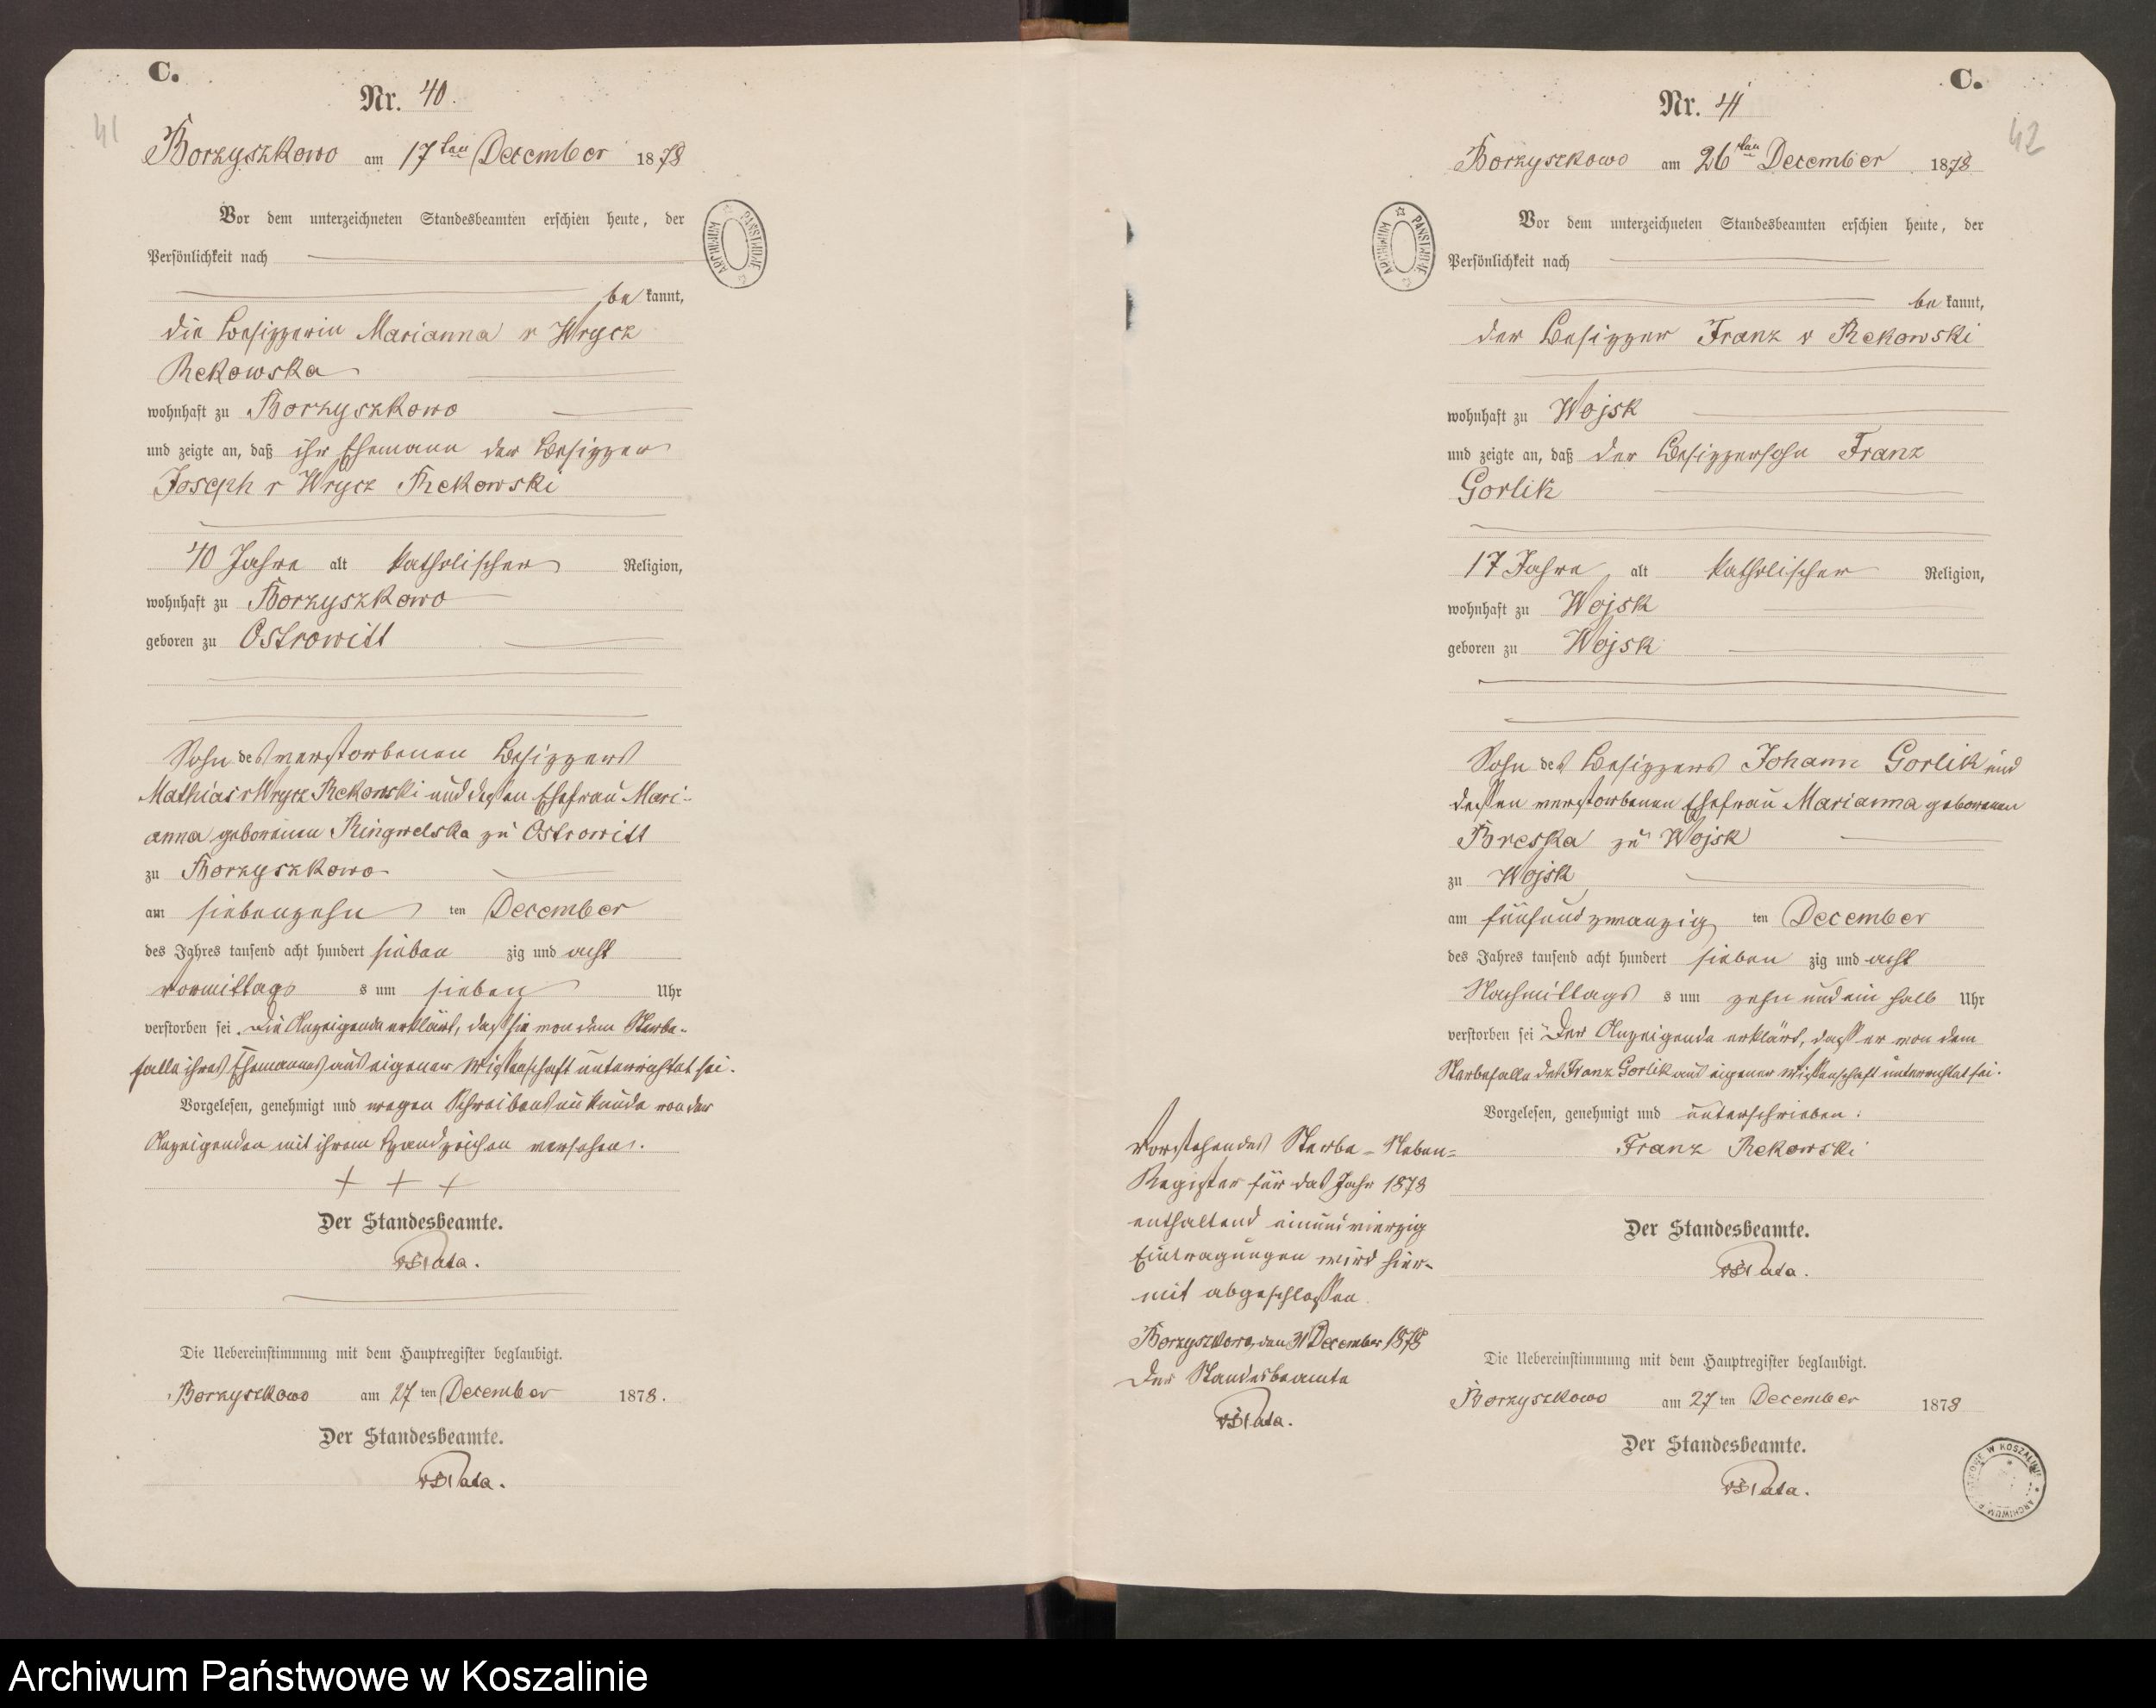 C.
41
Nr. 40.
Borzyszkowo am 17ten December 1878
Vor dem unterzeichneten Standesbeamten erschien heute, der
Persönlichkeit nach
be kannt,
die Besitzerin Marianna v Wrycz
Rekowska
wohnhaft zu Borzyszkowo
und zeigte an, daß ihr Ehemann der Besitzer
Joseph v Wrycz Rekowski
40 Jahre alt katholischer Religion,
wohnhaft zu Borzyszkowo
geboren zu Ostrowitt
Sohn des verstorbenen Besitzers
Mathias v Wrycz Rekowski und dessen Ehefrau Mari-
anna geborenen Kingwelska zu Ostrowitt
zu Borzyszkowo
am siebenzehn ten December
des Jahres tausend acht hundert sieben zig und acht
vormittags s um sieben Uhr
verstorben sei. Die Anzeigende erklärt, dass sie von dem Sterbe-
falle ihres Ehemannes aus eigener Wissenschaft unterrichtet sei.
Vorgelesen, genehmigt und wegen Schreibensunkunde von der
Anzeigenden mit ihrem Handzeichen versehen.
+ + +
Der Standesbeamte.
Die Uebereinstimmung mit dem Hauptregister beglaubigt.
Borzyszkowo am 27 ten December 1878.
Der Standesbeamte.
ARCHIWUM PAŃSTWOWE
C.
42
Nr. 41
Borzyszkowo am 26ten December 1878
Vor dem unterzeichneten Standesbeamten erschien heute, der
Persönlichkeit nach
be kannt,
der Besitzer Franz v Rekowski
wohnhaft zu Wojsk
und zeigte an, daß der Besitzersohn Franz
Gorlik
17 Jahre alt katholischer Religion,
wohnhaft zu Wojsk
geboren zu Wojsk
Sohn des Besitzers Johann Gorlik und
dessen verstorbenen Ehefrau Marianna geborenen
Breska zu Wojsk
zu Wojsk
am fünfundzwanzig ten December
des Jahres tausend acht hundert sieben zig und acht
Nachmittags s um zehn und ein halb Uhr
verstorben sei Der Anzeigende erklärt, dass er von dem
Sterbefalle des Franz Gorlik aus eigener Wissenschaft unterrichtet sei.
Vorgelesen, genehmigt und unterschrieben:
Franz Rekowski
Der Standesbeamte.
Die Uebereinstimmung mit dem Hauptregister beglaubigt.
Borzyszkowo am 27 ten December 1878
Der Standesbeamte.
Vorstehendes Sterbe-Neben-
Register für das Jahr 1878
enthaltend einundvierzig
Eintragungen wird hier-
mit abgeschlossen.
Borzyszkowo, den 31 December 1878
Der Standesbeamte
ARCHIWUM PAŃSTWOWE
ARCHIWUM PAŃSTWOWE W KOSZALINIE
Archiwum Państwowe w Koszalinie